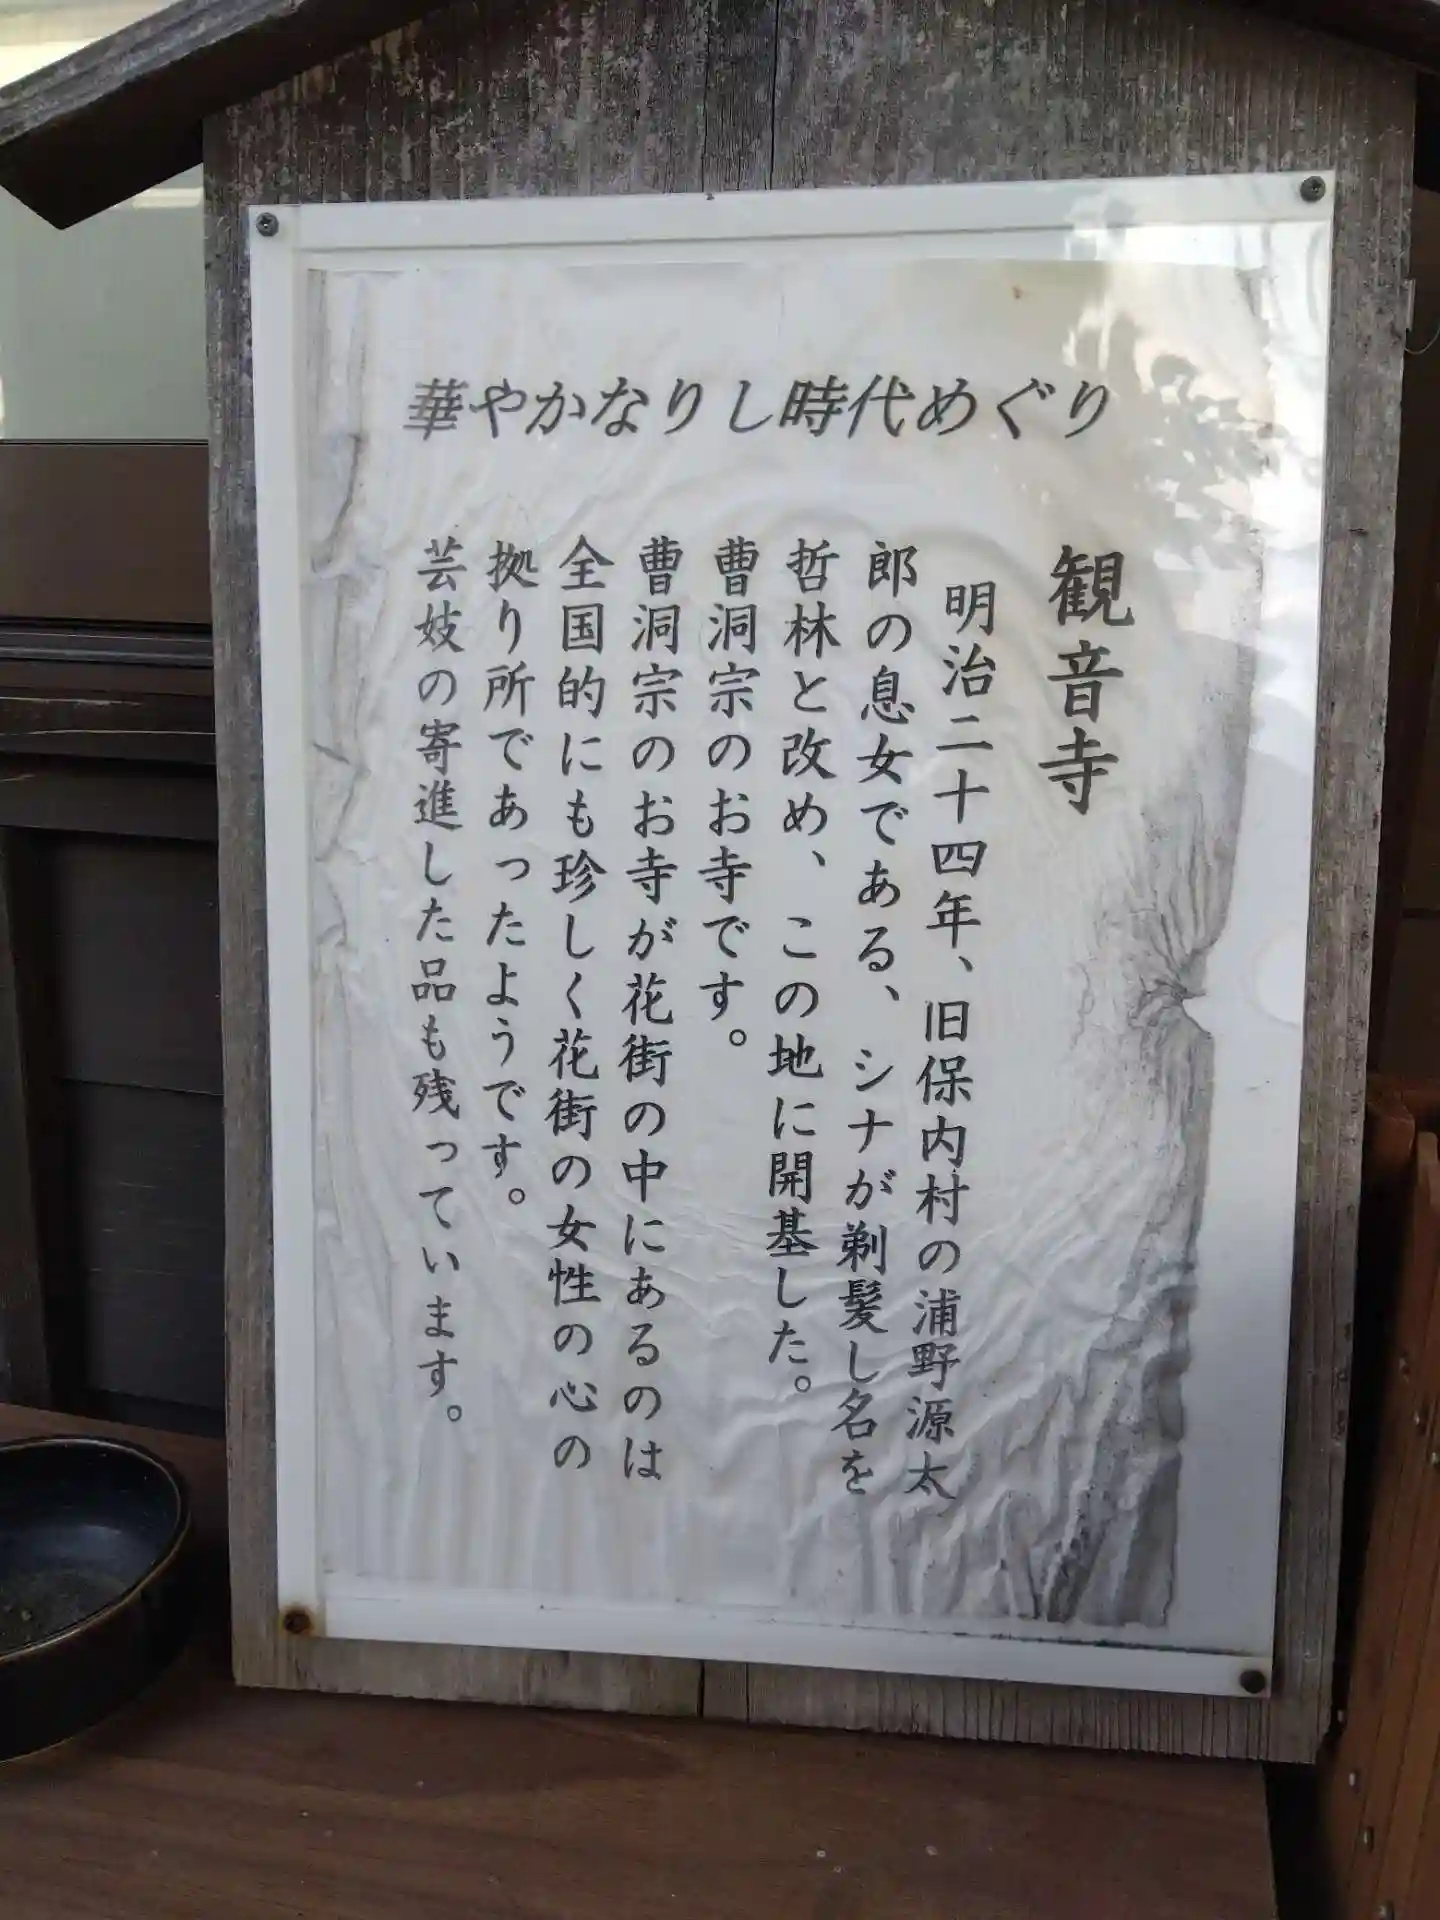 華やかなりし時代めぐり
観音寺
明治二十四年、旧保内村の浦野源太
郎の息女である、シナが剃髪し名を
哲林と改め、この地に開基した。
曹洞宗のお寺です。
曹洞宗のお寺が花街の中にあるのは
全国的にも珍しく花街の女性の心の
拠り所であったようです。
芸妓の寄進した品も残っています。